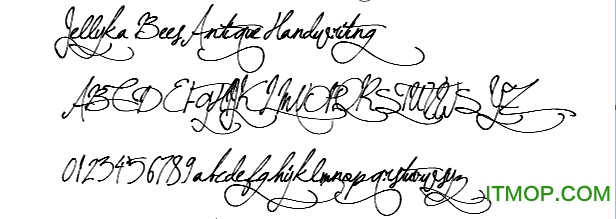 Jellyka Bees Antique Handwriting
ABCDEFGHIJKLMNOPQRSTUVWXYZ
0123456789abcdefghijklmnopqrstuvwxyz
ITMOP.COM